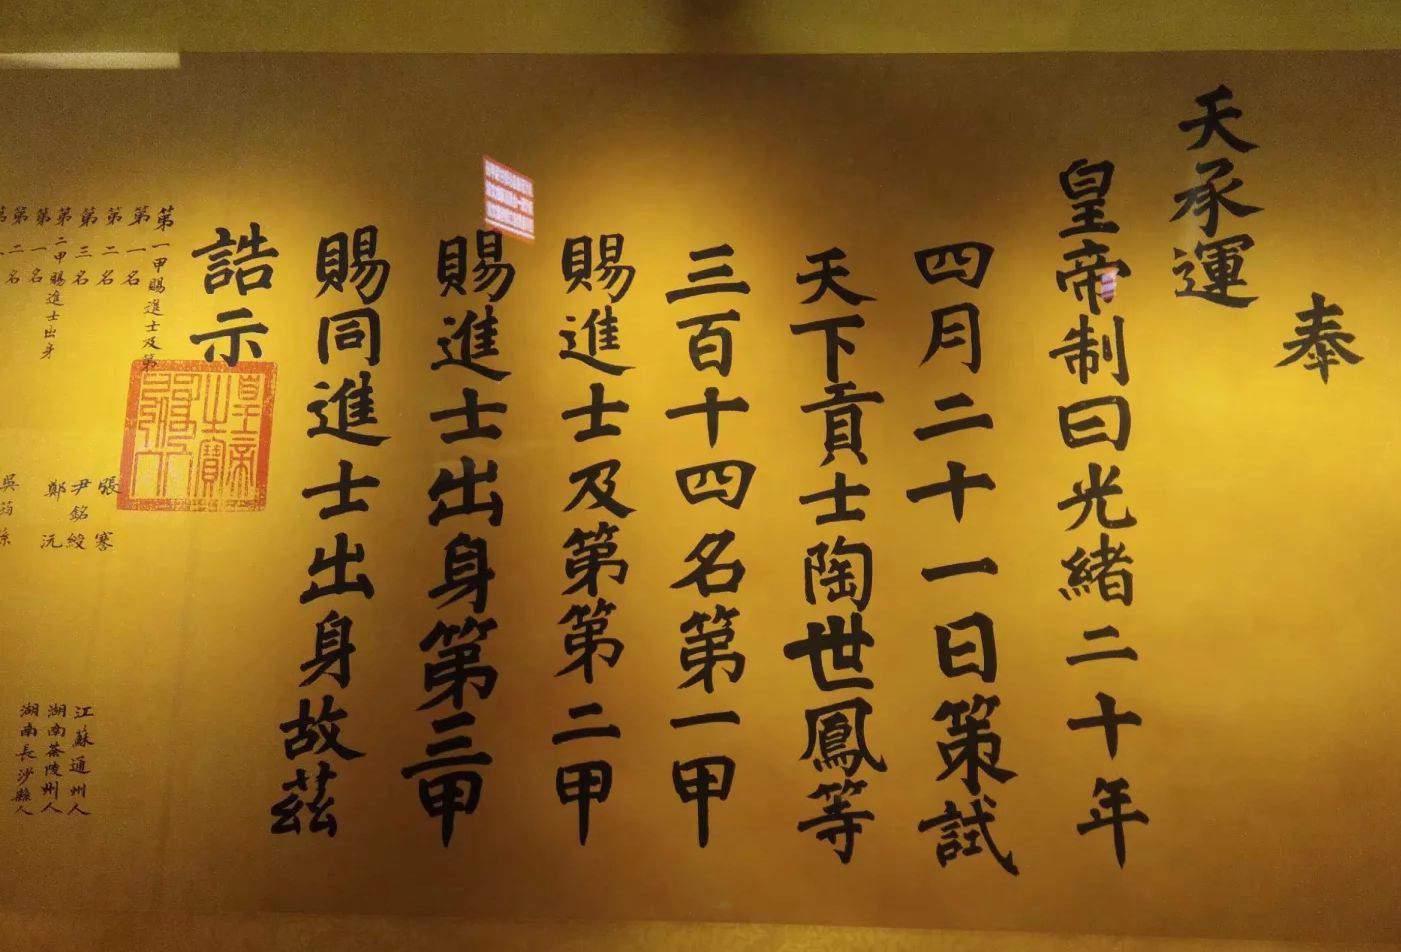 奉
天承運
皇帝制曰光緒二十年
四月二十一日策試
天下貢士陶世鳳等
三百十四名第一甲
賜進士及第第二甲
賜進士出身第三甲
賜同進士出身故茲
誥示
皇帝之寶
第一甲賜進士及第
第一名
張謇
江蘇通州人
第二名
尹銘綬
湖南茶陵州人
第三名
鄭沅
湖南長沙縣人
第二甲賜進士出身
第一名
吳筠孫
第二名